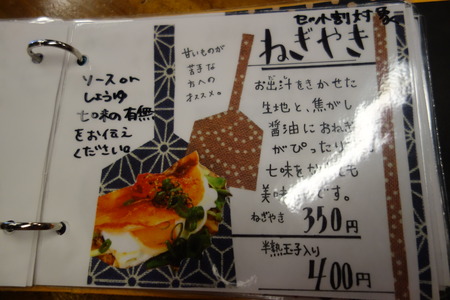 セット割対象
ねぎやき
甘いものが
苦手な
方への
オススメ。
ソースor
しょうゆ
七味の有無
をお伝え
ください。
お出汁をきかせた
生地と、焦がし
醤油におねぎ
がぴったり
七味をかけても
美味
です。
ねぎやき 350円
半熟玉子入り
400円